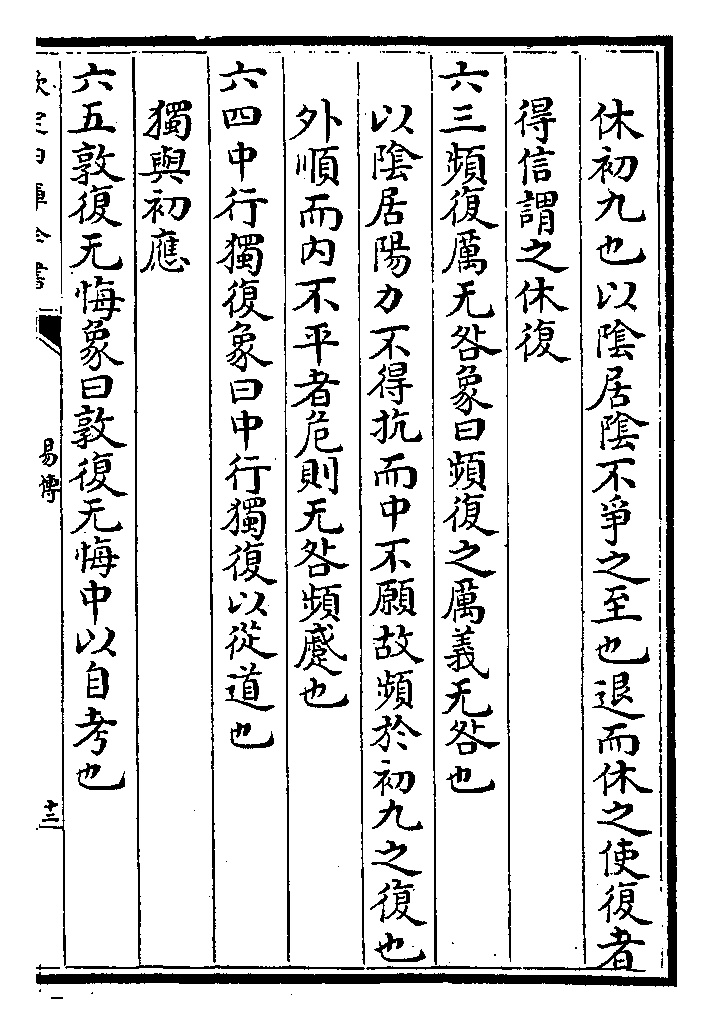 休初九也以陰居陰不爭之至也退而休之使復者
得信謂之休復
六三頻復厲无咎象曰頻復之厲義无咎也
以陰居陽力不得抗而中不願故頻於初九之復也
外順而内不平者危則无咎頻蹙也
六四中行獨復象曰中行獨復以從道也
獨與初應
六五敦復无悔象曰敦復无悔中以自考也
易傳
十三